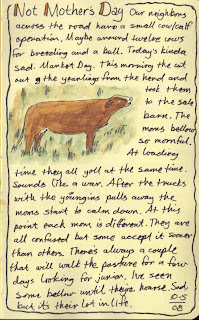 Not Mothers Day Our neighbors
across the road have a small cow/calf
operation. Maybe around twelve cows
for breeding and a bull. Today's kinda
sad. Market Day. This morning they cut
out the yearlings from the herd and
took them
to the sale
barn. The
moms bellow
so mornful.
At loading
time they all yell at the same time.
Sounds like a war. After the trucks
with the youngins pulls away the
moms start to calm down. At this
point each mom is different. They are
all confused but some accept it sooner
than others. There's always a couple
that will walk the pasture for a few
days looking for junior. I've seen
some bellow until they're hoarse. Sad
but its their lot in life. 10-5
08